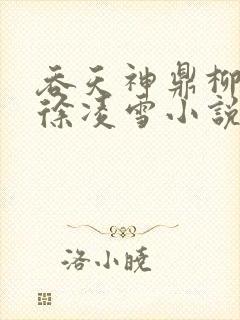 吞天神鼎柳
徐凌雪小說
洛小曉